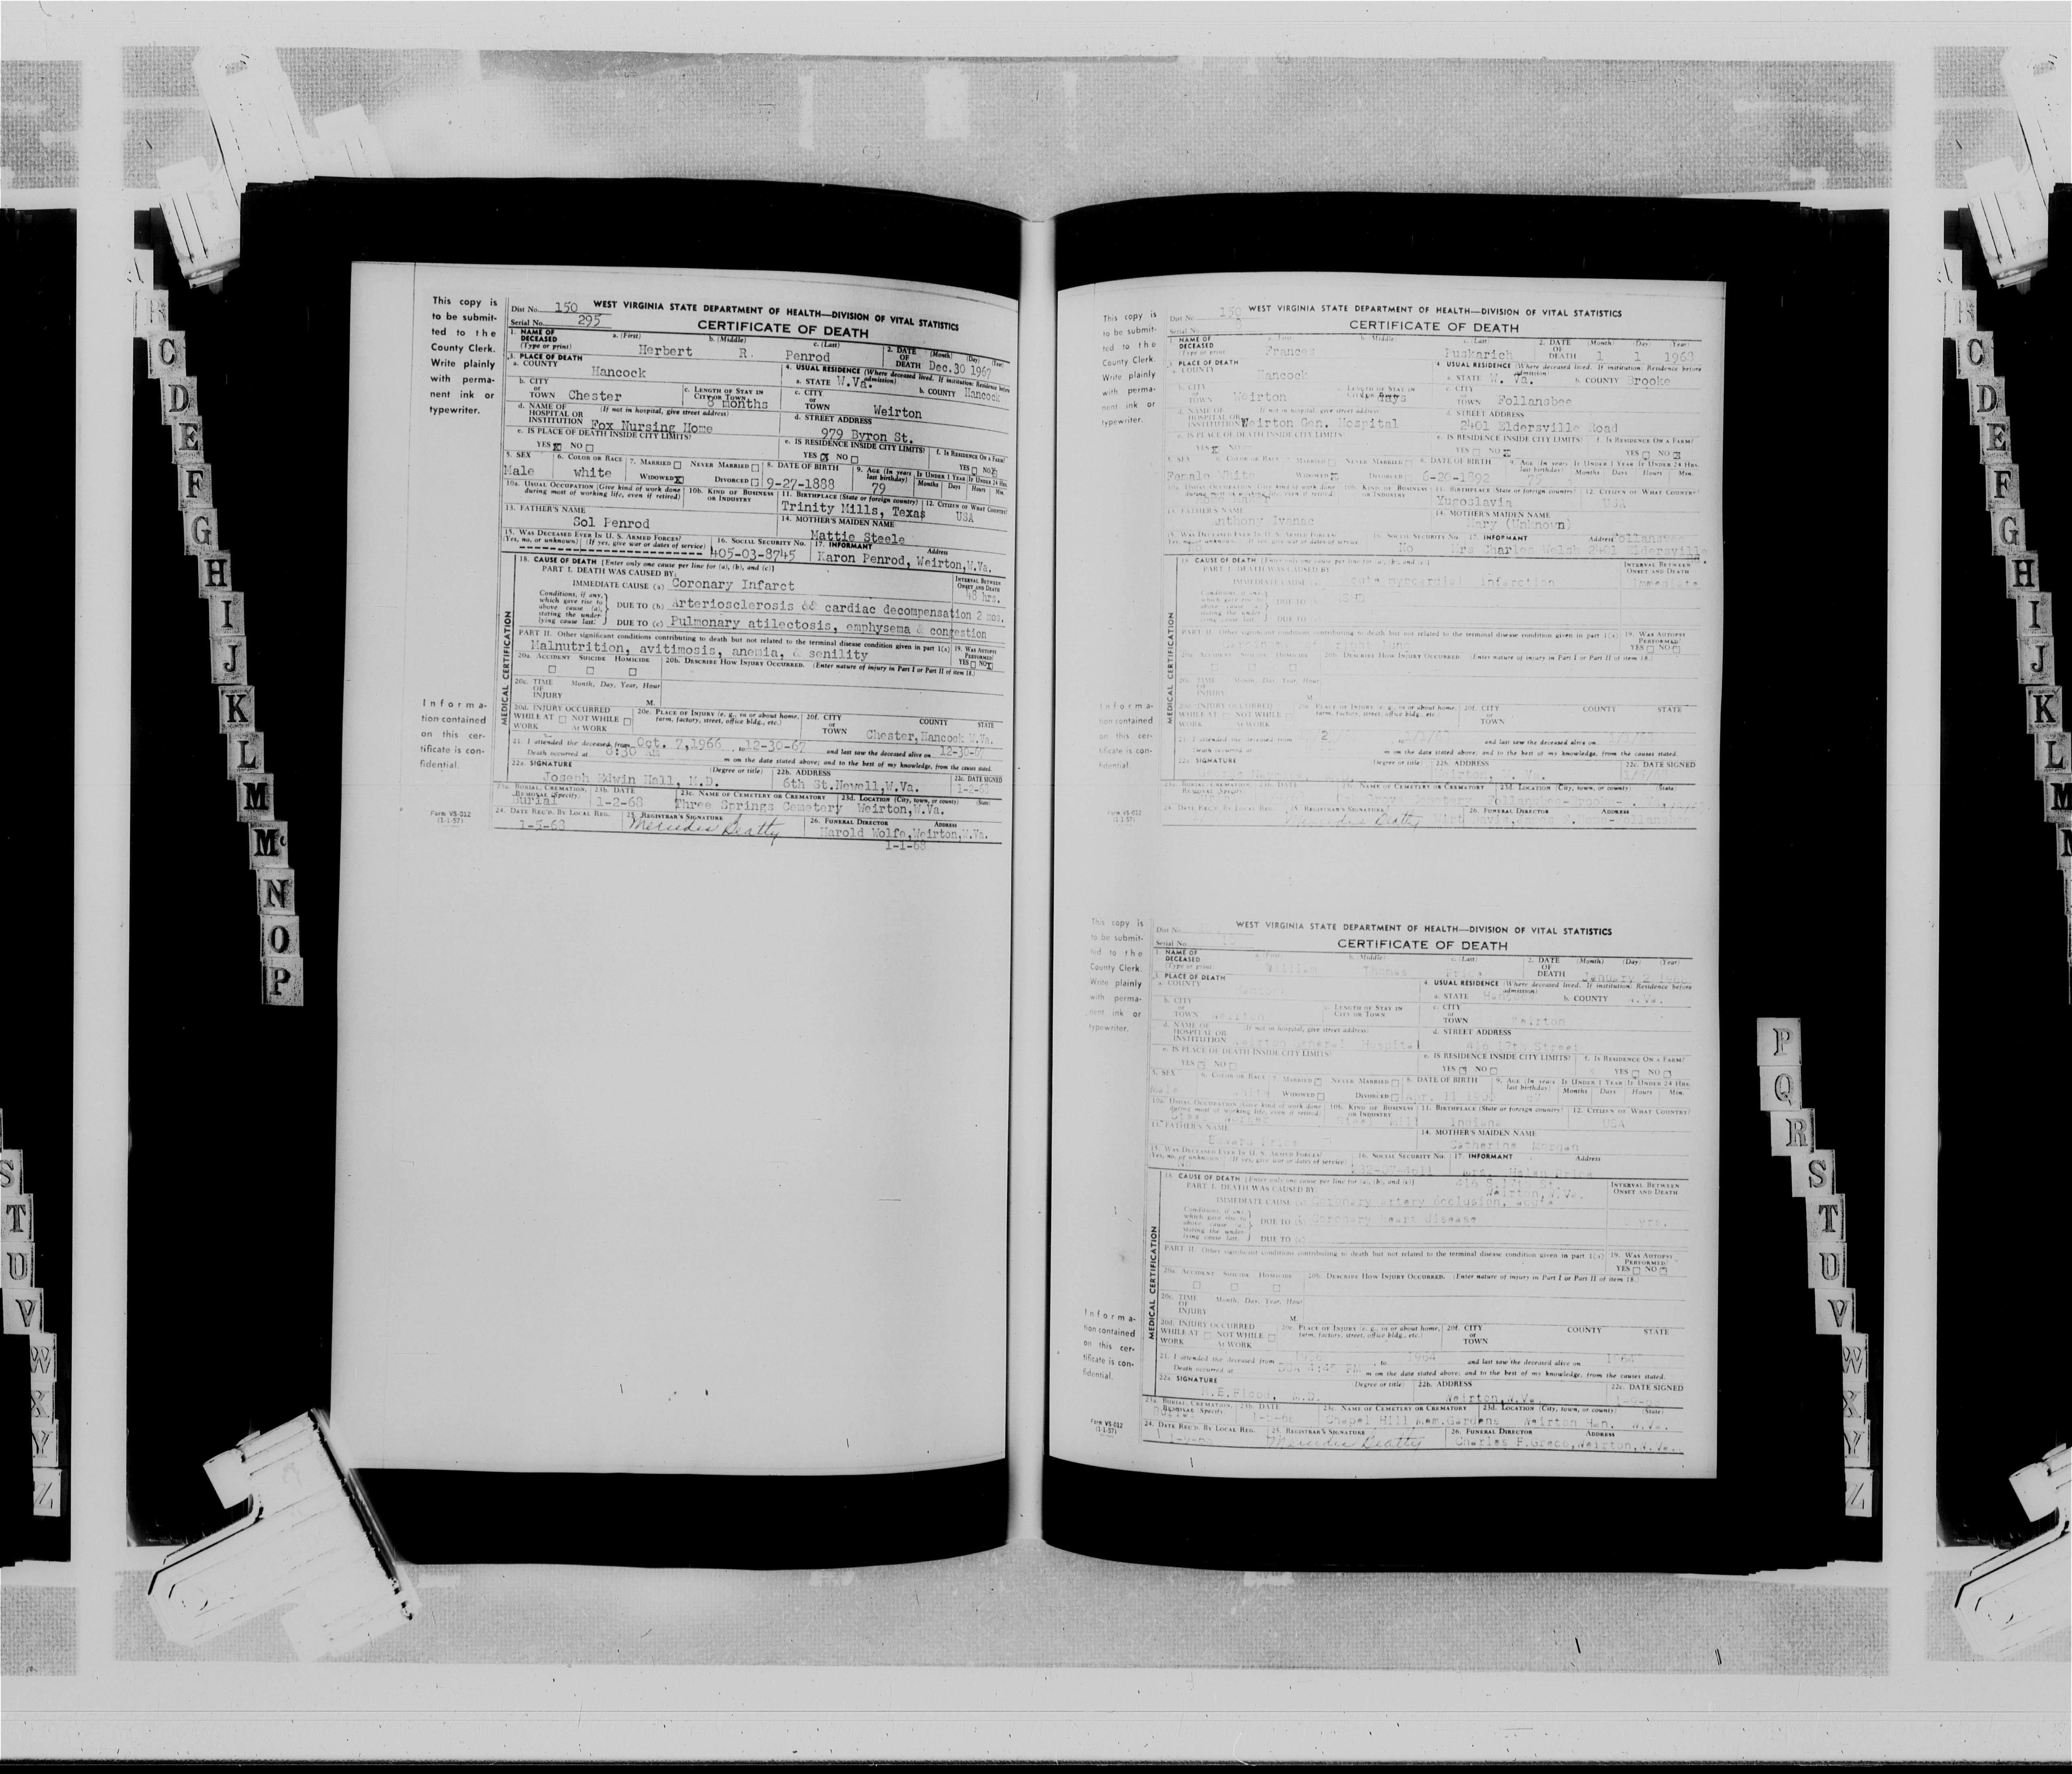 This copy is
to be submit-
ted to the
County Clerk.
Write plainly
with perma-
nent ink or
typewriter.
Dist No. 150 WEST VIRGINIA STATE DEPARTMENT OF HEALTH—DIVISION OF VITAL STATISTICS
Serial No. 295 CERTIFICATE OF DEATH
1. NAME OF DECEASED (Type or print) a. (First) b. (Middle) c. (Last) 2. DATE OF DEATH (Month) (Day) (Year)
Herbert R. Penrod Dec. 30 1967
3. PLACE OF DEATH 4. USUAL RESIDENCE (Where deceased lived. If institution: Residence before admission)
a. COUNTY Hancock a. STATE W.Va. b. COUNTY Hancock
b. CITY or TOWN Chester c. LENGTH OF STAY IN CITY OR TOWN 8 months c. CITY or TOWN Weirton
d. NAME OF HOSPITAL OR INSTITUTION (If not in hospital, give street address) Fox Nursing Home d. STREET ADDRESS 979 Byron St.
e. IS PLACE OF DEATH INSIDE CITY LIMITS? YES NO e. IS RESIDENCE INSIDE CITY LIMITS? YES NO f. IS RESIDENCE ON A FARM? YES NO
5. SEX 6. COLOR OR RACE 7. MARRIED NEVER MARRIED 8. DATE OF BIRTH 9. AGE (In years last birthday) IF UNDER 1 YEAR IF UNDER 24 HRS.
Male white WIDOWED DIVORCED 9-27-1888 79 Months Days Hours Min.
10a. USUAL OCCUPATION (Give kind of work done during most of working life, even if retired) 10b. KIND OF BUSINESS OR INDUSTRY 11. BIRTHPLACE (State or foreign country) 12. CITIZEN OF WHAT COUNTRY?
Trinity Mills, Texas USA
13. FATHER'S NAME Sol Penrod 14. MOTHER'S MAIDEN NAME Mattie Steele
15. WAS DECEASED EVER IN U. S. ARMED FORCES? (Yes, no, or unknown) (If yes, give war or dates of service) 16. SOCIAL SECURITY No. 17. INFORMANT Address
405-03-8745 Karon Penrod, Weirton,W.Va.
MEDICAL CERTIFICATION
18. CAUSE OF DEATH [Enter only one cause per line for (a), (b), and (c)]
PART I. DEATH WAS CAUSED BY: INTERVAL BETWEEN ONSET AND DEATH
IMMEDIATE CAUSE (a) Coronary Infarct 48 hrs.
Conditions, if any, which gave rise to above cause (a), stating the underlying cause last.
DUE TO (b) Arteriosclerosis && cardiac decompensation 2 mos.
DUE TO (c) Pulmonary atilectosis, emphysema & congestion
PART II. Other significant conditions contributing to death but not related to the terminal disease condition given in part I(a) 19. WAS AUTOPSY PERFORMED? YES NO
Malnutrition, avitimosis, anemia, & senility
20a. ACCIDENT SUICIDE HOMICIDE 20b. DESCRIBE HOW INJURY OCCURRED. (Enter nature of injury in Part I or Part II of item 18.)
20c. TIME OF INJURY Month, Day, Year, Hour M.
20d. INJURY OCCURRED WHILE AT WORK NOT WHILE AT WORK 20e. PLACE OF INJURY (e. g., in or about home, farm, factory, street, office bldg., etc.) 20f. CITY or TOWN COUNTY STATE
Chester, Hancock W.Va.
21. I attended the deceased from Oct. 7,1966 to 12-30-67 and last saw the deceased alive on 12-30-67
Death occurred at 8:30 AM m on the date stated above; and to the best of my knowledge, from the causes stated.
22a. SIGNATURE (Degree or title) 22b. ADDRESS 22c. DATE SIGNED
Joseph Edwin Hall, M.D. 6th St.Newell,W.Va. 1-2-68
23a. BURIAL, CREMATION, REMOVAL (Specify) 23b. DATE 23c. NAME OF CEMETERY OR CREMATORY 23d. LOCATION (City, town, or county) (State)
Burial 1-2-68 Three Springs Cemetery Weirton,W.Va.
24. DATE REC'D. BY LOCAL REG. 25. REGISTRAR'S SIGNATURE 26. FUNERAL DIRECTOR ADDRESS
1-5-68 Mercedes Beatty Harold Wolfe,Weirton,W.Va.
1-1-68
Informa-
tion contained
on this cer-
tificate is con-
fidential.
Form VS-012
(1-1-57)
This copy is
to be submit-
ted to the
County Clerk.
Write plainly
with perma-
nent ink or
typewriter.
Dist No. 150 WEST VIRGINIA STATE DEPARTMENT OF HEALTH—DIVISION OF VITAL STATISTICS
Serial No. CERTIFICATE OF DEATH
1. NAME OF DECEASED (Type or print) a. (First) b. (Middle) c. (Last) 2. DATE OF DEATH (Month) (Day) (Year)
Frances Puskarich 1 1 1968
3. PLACE OF DEATH 4. USUAL RESIDENCE (Where deceased lived. If institution: Residence before admission)
a. COUNTY Hancock a. STATE W. Va. b. COUNTY Brooke
b. CITY or TOWN Weirton c. LENGTH OF STAY IN CITY OR TOWN days c. CITY or TOWN Follansbee
d. NAME OF HOSPITAL OR INSTITUTION (If not in hospital, give street address) Weirton Gen. Hospital d. STREET ADDRESS 2401 Eldersville Road
e. IS PLACE OF DEATH INSIDE CITY LIMITS? YES NO e. IS RESIDENCE INSIDE CITY LIMITS? YES NO f. IS RESIDENCE ON A FARM? YES NO
5. SEX 6. COLOR OR RACE 7. MARRIED NEVER MARRIED 8. DATE OF BIRTH 9. AGE (In years last birthday) IF UNDER 1 YEAR IF UNDER 24 HRS.
Female White WIDOWED DIVORCED 6-20-1892 75 Months Days Hours Min.
10a. USUAL OCCUPATION (Give kind of work done during most of working life, even if retired) 10b. KIND OF BUSINESS OR INDUSTRY 11. BIRTHPLACE (State or foreign country) 12. CITIZEN OF WHAT COUNTRY?
Yugoslavia USA
13. FATHER'S NAME Anthony Ivanac 14. MOTHER'S MAIDEN NAME Mary (Unknown)
15. WAS DECEASED EVER IN U. S. ARMED FORCES? 16. SOCIAL SECURITY No. 17. INFORMANT Address Follansbee
No No Mrs Charles Welch 2401 Eldersville
MEDICAL CERTIFICATION
18. CAUSE OF DEATH [Enter only one cause per line for (a), (b), and (c)]
PART I. DEATH WAS CAUSED BY INTERVAL BETWEEN ONSET AND DEATH
IMMEDIATE CAUSE (a) acute myocardial infarction Immediate
DUE TO (b) ASHD
DUE TO (c)
PART II. Other significant conditions contributing to death but not related to the terminal disease condition given in part I(a) 19. WAS AUTOPSY PERFORMED? YES NO
Carcinoma of right lung
20a. ACCIDENT SUICIDE HOMICIDE 20b. DESCRIBE HOW INJURY OCCURRED. (Enter nature of injury in Part I or Part II of item 18.)
20c. TIME OF INJURY Month, Day, Year, Hour M.
20d. INJURY OCCURRED WHILE AT WORK NOT WHILE AT WORK 20e. PLACE OF INJURY (e. g., in or about home, farm, factory, street, office bldg., etc.) 20f. CITY or TOWN COUNTY STATE
21. I attended the deceased from to and last saw the deceased alive on
Death occurred at m on the date stated above; and to the best of my knowledge, from the causes stated.
22a. SIGNATURE (Degree or title) 22b. ADDRESS 22c. DATE SIGNED
Weirton, W. Va.
23a. BURIAL, CREMATION, REMOVAL (Specify) 23b. DATE 23c. NAME OF CEMETERY OR CREMATORY 23d. LOCATION (City, town, or county) (State)
Follansbee-Brooke
24. DATE REC'D. BY LOCAL REG. 25. REGISTRAR'S SIGNATURE 26. FUNERAL DIRECTOR ADDRESS
Mercedes Beatty Follansbee
Informa-
tion contained
on this cer-
tificate is con-
fidential.
Form VS-012
(1-1-57)
This copy is
to be submit-
ted to the
County Clerk.
Write plainly
with perma-
nent ink or
typewriter.
Dist No. WEST VIRGINIA STATE DEPARTMENT OF HEALTH—DIVISION OF VITAL STATISTICS
Serial No. CERTIFICATE OF DEATH
1. NAME OF DECEASED (Type or print) a. (First) b. (Middle) c. (Last) 2. DATE OF DEATH (Month) (Day) (Year)
William Thomas Price January 2 1968
3. PLACE OF DEATH 4. USUAL RESIDENCE (Where deceased lived. If institution: Residence before admission)
a. COUNTY Hancock a. STATE b. COUNTY W.Va.
b. CITY or TOWN Weirton c. LENGTH OF STAY IN CITY OR TOWN c. CITY or TOWN Weirton
d. NAME OF HOSPITAL OR INSTITUTION (If not in hospital, give street address) Weirton General Hospital d. STREET ADDRESS 416 17th Street
e. IS PLACE OF DEATH INSIDE CITY LIMITS? YES NO e. IS RESIDENCE INSIDE CITY LIMITS? YES NO f. IS RESIDENCE ON A FARM? YES NO
5. SEX 6. COLOR OR RACE 7. MARRIED NEVER MARRIED 8. DATE OF BIRTH 9. AGE (In years last birthday) IF UNDER 1 YEAR IF UNDER 24 HRS.
Male WIDOWED DIVORCED Apr. 11 1900 67 Months Days Hours Min.
10a. USUAL OCCUPATION (Give kind of work done during most of working life, even if retired) 10b. KIND OF BUSINESS OR INDUSTRY 11. BIRTHPLACE (State or foreign country) 12. CITIZEN OF WHAT COUNTRY?
Steel Mill Indiana USA
13. FATHER'S NAME Edward Price 14. MOTHER'S MAIDEN NAME Catherine Morgan
15. WAS DECEASED EVER IN U. S. ARMED FORCES? (Yes, no, or unknown) (If yes, give war or dates of service) 16. SOCIAL SECURITY No. 17. INFORMANT Address
Mrs. Helen Price
416 S.17th St.
Weirton,W.Va.
MEDICAL CERTIFICATION
18. CAUSE OF DEATH [Enter only one cause per line for (a), (b), and (c)]
PART I. DEATH WAS CAUSED BY INTERVAL BETWEEN ONSET AND DEATH
IMMEDIATE CAUSE (a) Coronary artery occlusion, acute
Conditions, if any, which gave rise to above cause (a), stating the underlying cause last.
DUE TO (b) Coronary heart disease yrs.
DUE TO (c)
PART II. Other significant conditions contributing to death but not related to the terminal disease condition given in part I(a) 19. WAS AUTOPSY PERFORMED? YES NO
20a. ACCIDENT SUICIDE HOMICIDE 20b. DESCRIBE HOW INJURY OCCURRED. (Enter nature of injury in Part I or Part II of item 18.)
20c. TIME OF INJURY Month, Day, Year, Hour M.
20d. INJURY OCCURRED WHILE AT WORK NOT WHILE AT WORK 20e. PLACE OF INJURY (e. g., in or about home, farm, factory, street, office bldg., etc.) 20f. CITY or TOWN COUNTY STATE
21. I attended the deceased from to 1964 and last saw the deceased alive on 1964
Death occurred at DOA 4:45 PM m on the date stated above; and to the best of my knowledge, from the causes stated.
22a. SIGNATURE (Degree or title) 22b. ADDRESS 22c. DATE SIGNED
H.E.Flood, M.D. Weirton,W.Va.
23a. BURIAL, CREMATION, REMOVAL (Specify) 23b. DATE 23c. NAME OF CEMETERY OR CREMATORY 23d. LOCATION (City, town, or county) (State)
Burial 1-5-68 Chapel Hill Mem.Gardens Weirton Han. W.Va.
24. DATE REC'D. BY LOCAL REG. 25. REGISTRAR'S SIGNATURE 26. FUNERAL DIRECTOR ADDRESS
Mercedes Beatty Charles F.Greco,Weirton,W.Va.
Informa-
tion contained
on this cer-
tificate is con-
fidential.
Form VS-012
(1-1-57)
C
D
E
F
G
H
I
J
K
L
M
Mc
N
O
P
P
Q
R
S
T
U
V
W
X
Y
Z
S
T
U
V
W
X
Y
Z
C
D
E
F
G
H
I
J
K
L
M